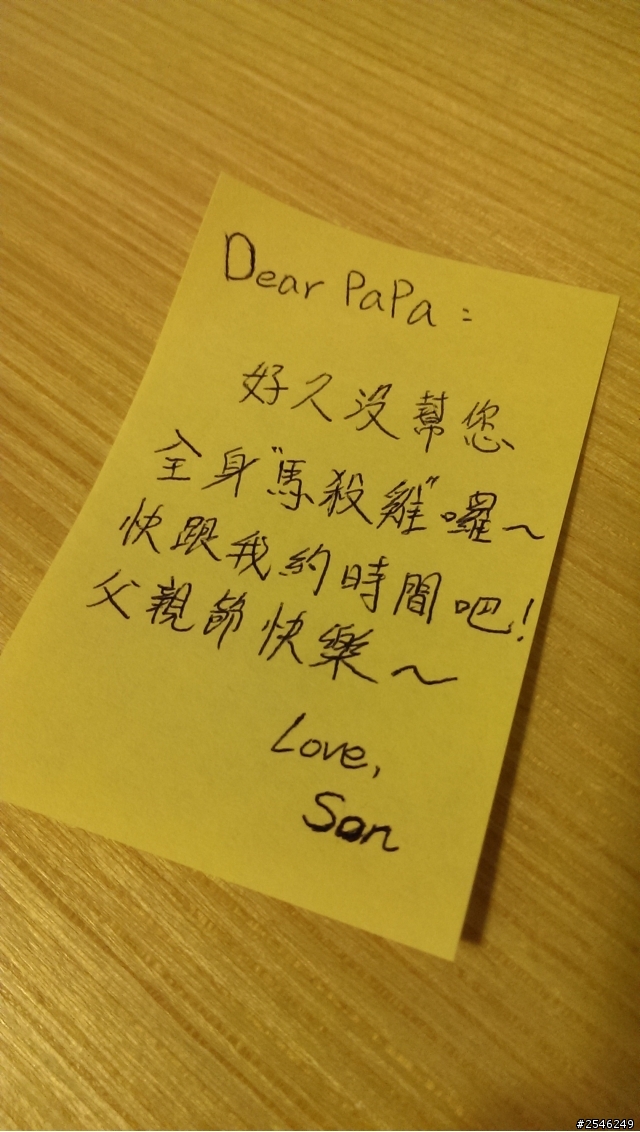 Dear PaPa:
好久沒幫您
全身"馬殺雞"囉~
快跟我約時間吧!
父親節快樂~
Love,
Son
#2546249